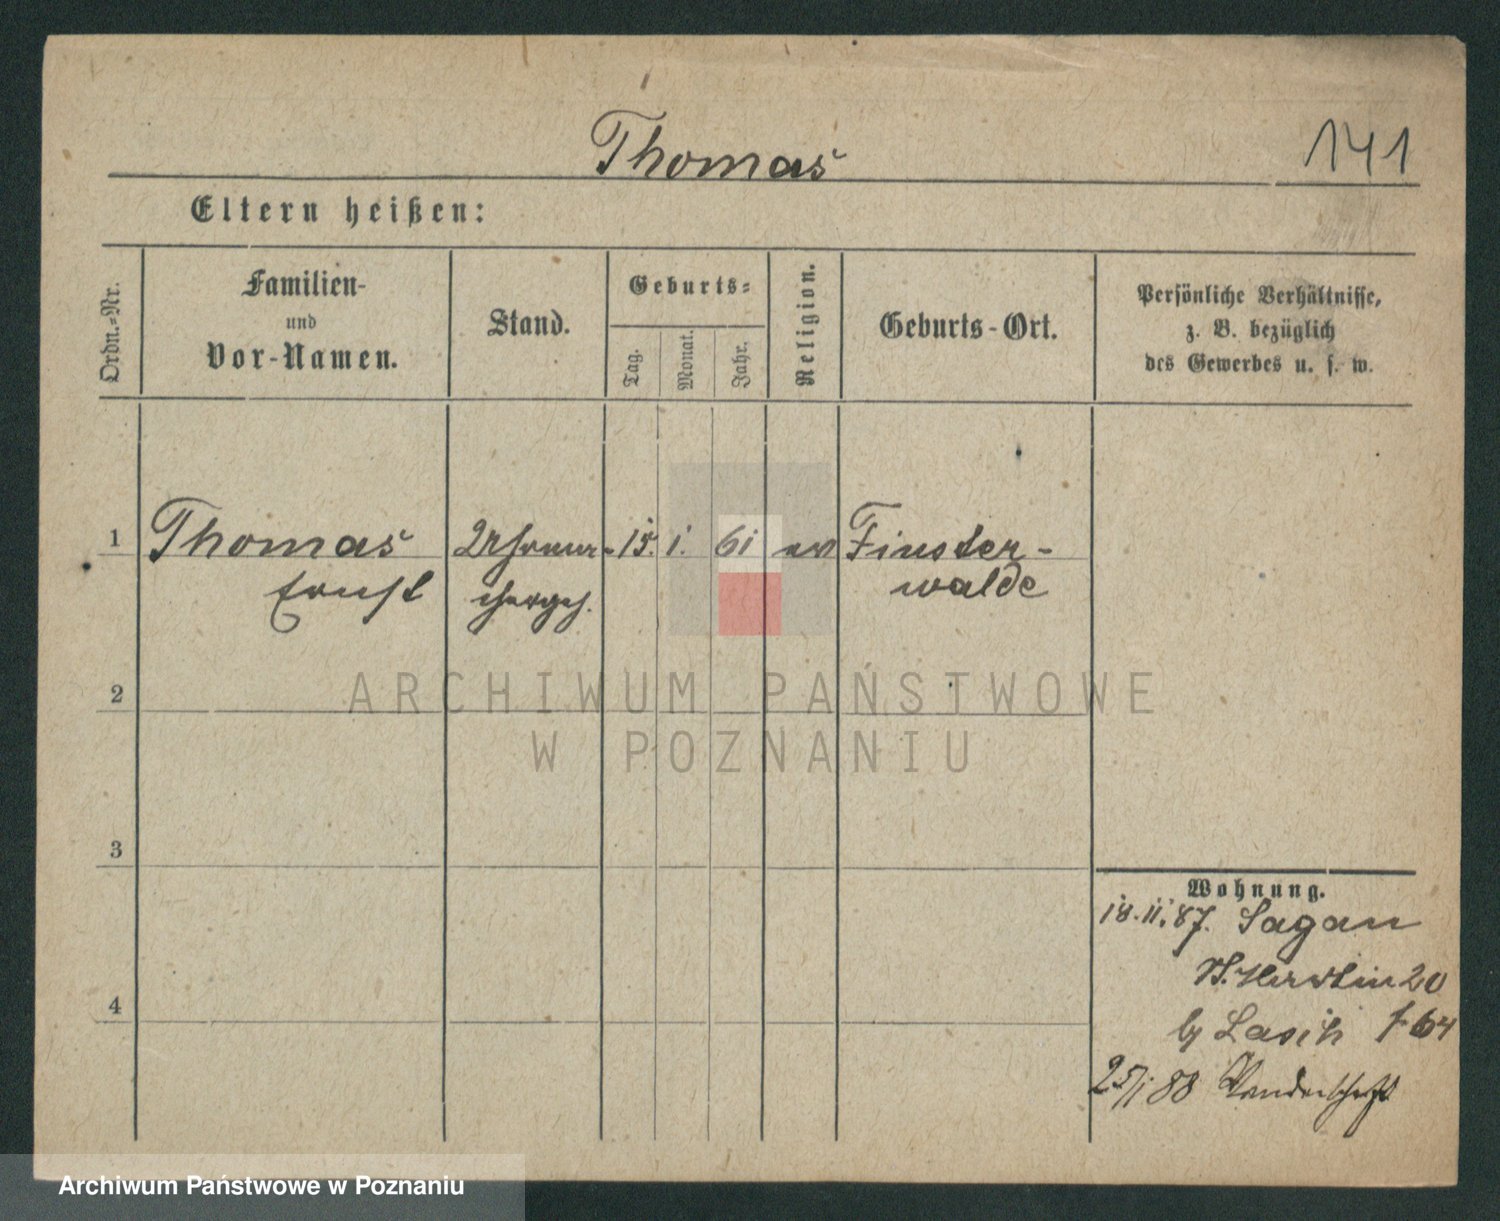 Thomas
141
Eltern heißen:
Ordn.-Nr.
Familien-
und
Vor-Namen.
Stand.
Geburts-
Tag.
Monat.
Jahr.
Religion.
Geburts-Ort.
Persönliche Verhältnisse,
z. B. bezüglich
des Gewerbes u. s. w.
1 Thomas Uhrma- 15. 1. 61 ev Finster-
Ernst chergeh. walde
2
ARCHIWUM PAŃSTWOWE
W POZNANIU
3
Wohnung.
18.11.87. Sagan
St. Martin 20
by Lasik f 64
4
25/1 88 Wanderschaft
Archiwum Państwowe w Poznaniu